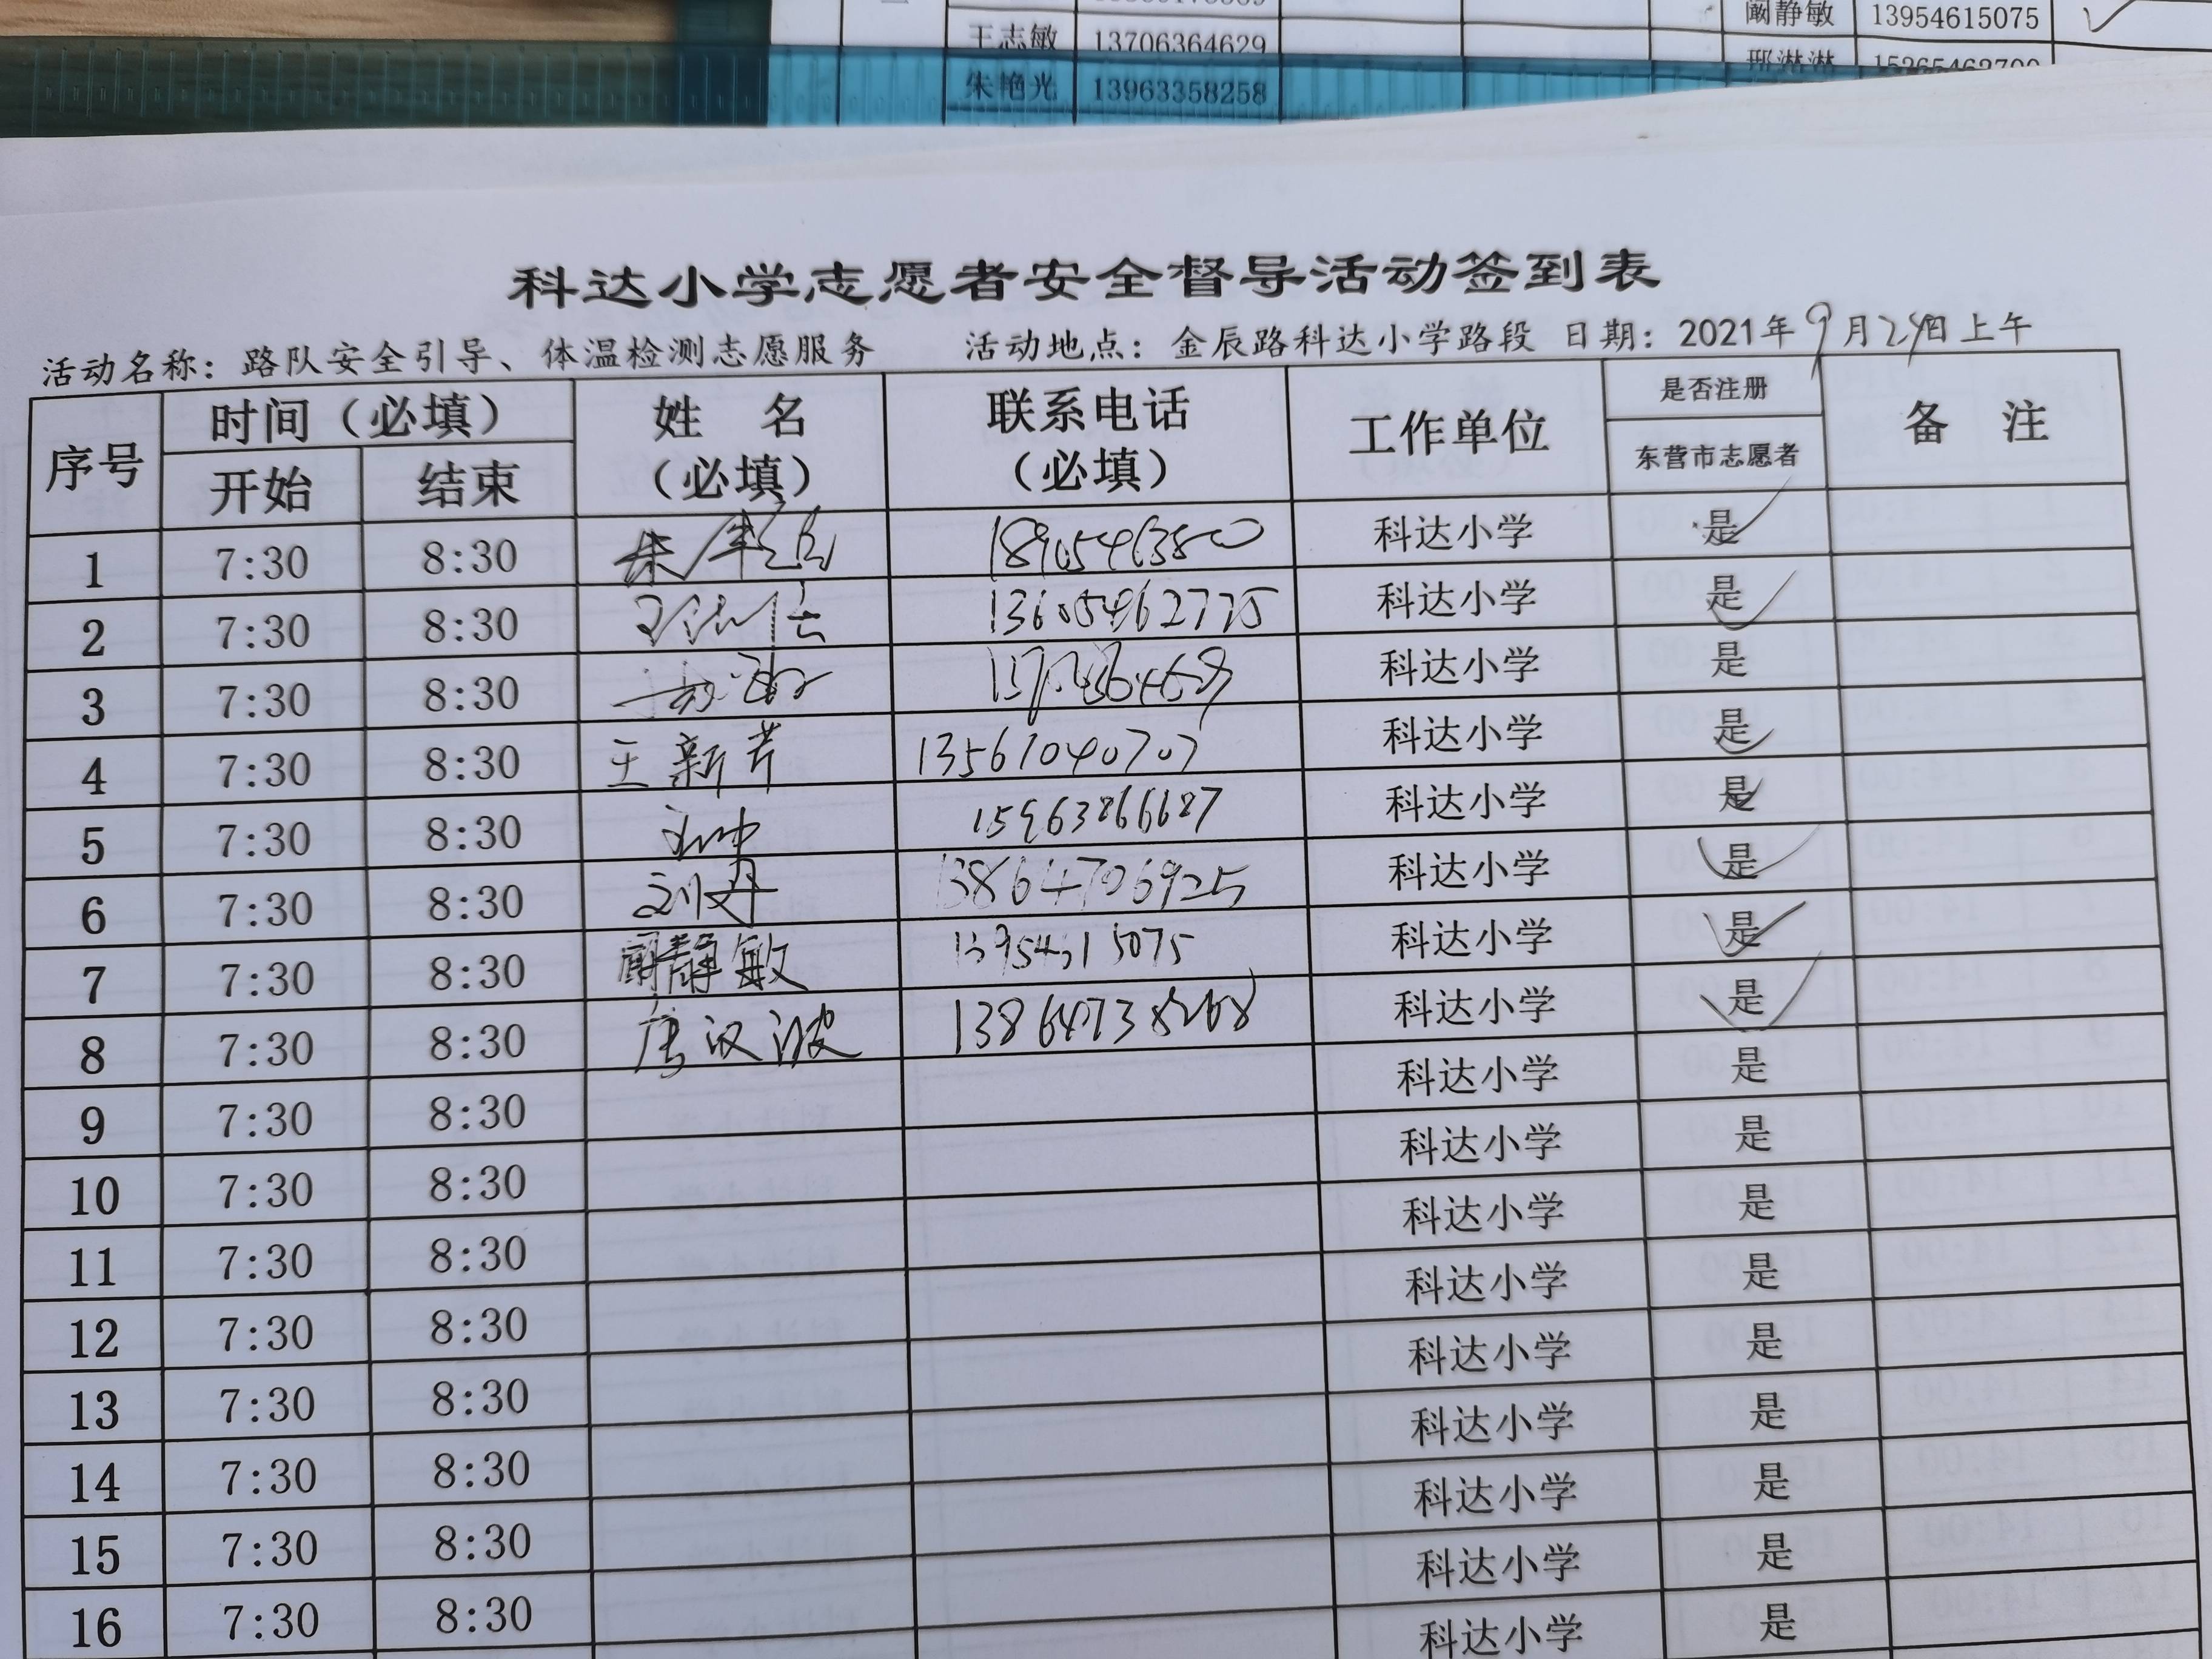 阚静敏 13954615075
王志敏 13706364629
朱艳光 13963358258
科达小学志愿者安全督导活动签到表
活动名称：路队安全引导、体温检测志愿服务 活动地点：金辰路科达小学路段 日期：2021年9月24日上午
序号 时间（必填） 姓 名（必填） 联系电话（必填） 工作单位 是否注册 备 注
开始 结束 东营市志愿者
1 7:30 8:30 18905463880 科达小学 是
2 7:30 8:30 13605462775 科达小学 是
3 7:30 8:30 科达小学 是
4 7:30 8:30 王新芹 13561040707 科达小学 是
5 7:30 8:30 15963866687 科达小学 是
6 7:30 8:30 刘丹 13864706925 科达小学 是
7 7:30 8:30 阚静敏 科达小学 是
8 7:30 8:30 唐汉波 13864738268 科达小学 是
9 7:30 8:30 科达小学 是
10 7:30 8:30 科达小学 是
11 7:30 8:30 科达小学 是
12 7:30 8:30 科达小学 是
13 7:30 8:30 科达小学 是
14 7:30 8:30 科达小学 是
15 7:30 8:30 科达小学 是
16 7:30 8:30 科达小学 是